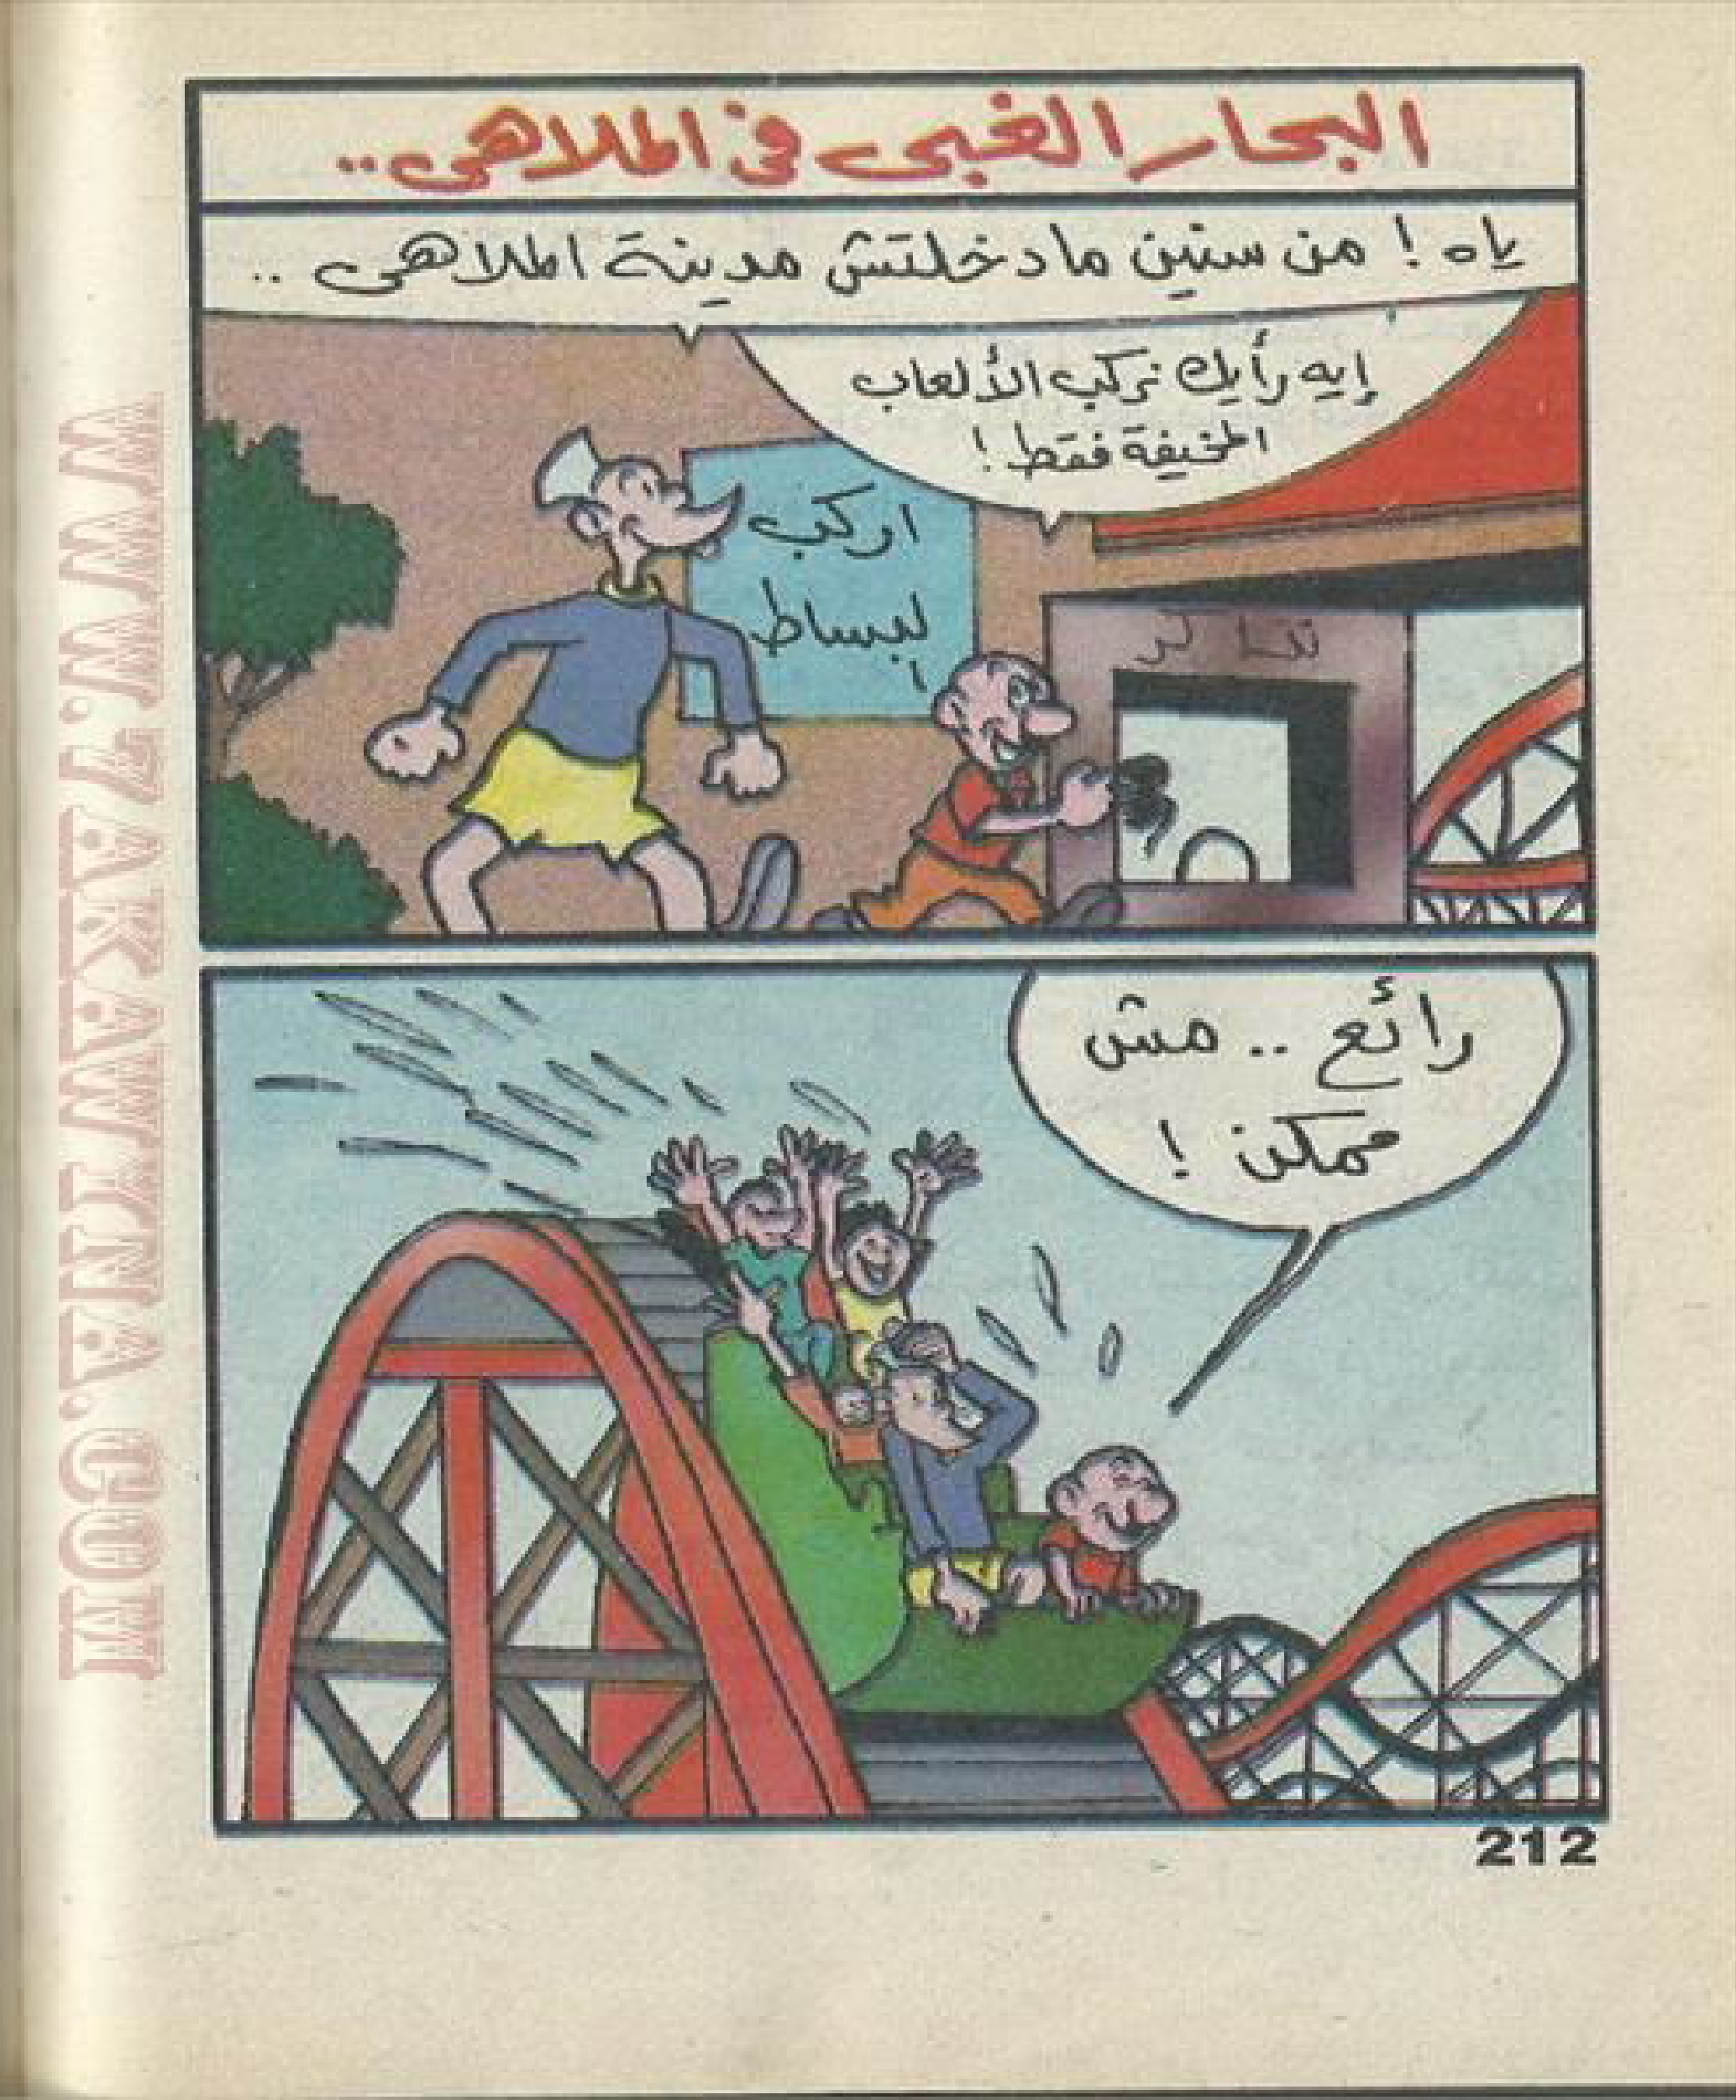 البحار الغبى فى الملاهى..
ياه ! من سنين ما دخلتش مدينة الملاهى ..
إيه رأيك نركب الألعاب
المخيفة فقط !
اركب
البساط
تذاكر
رائع .. مش
ممكن !
212
WWW.7AKAWTNA.COM